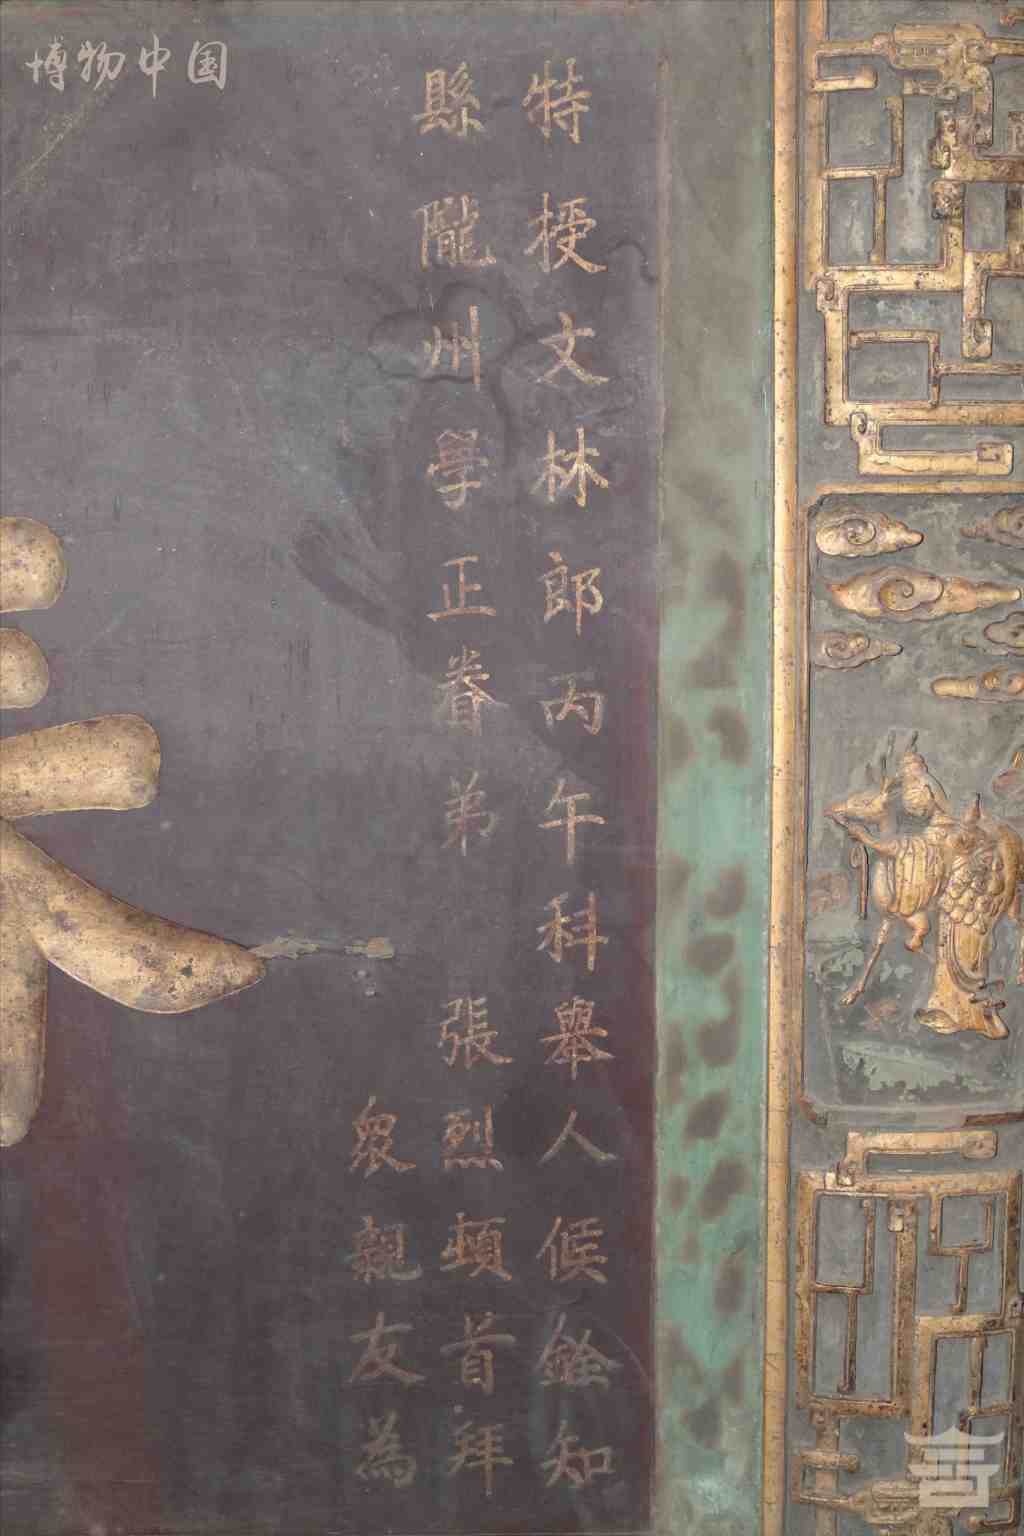 博物中国
特授文林郎丙午科舉人候銓知
縣隴州學正眷弟張烈頓首拜
眾親友為